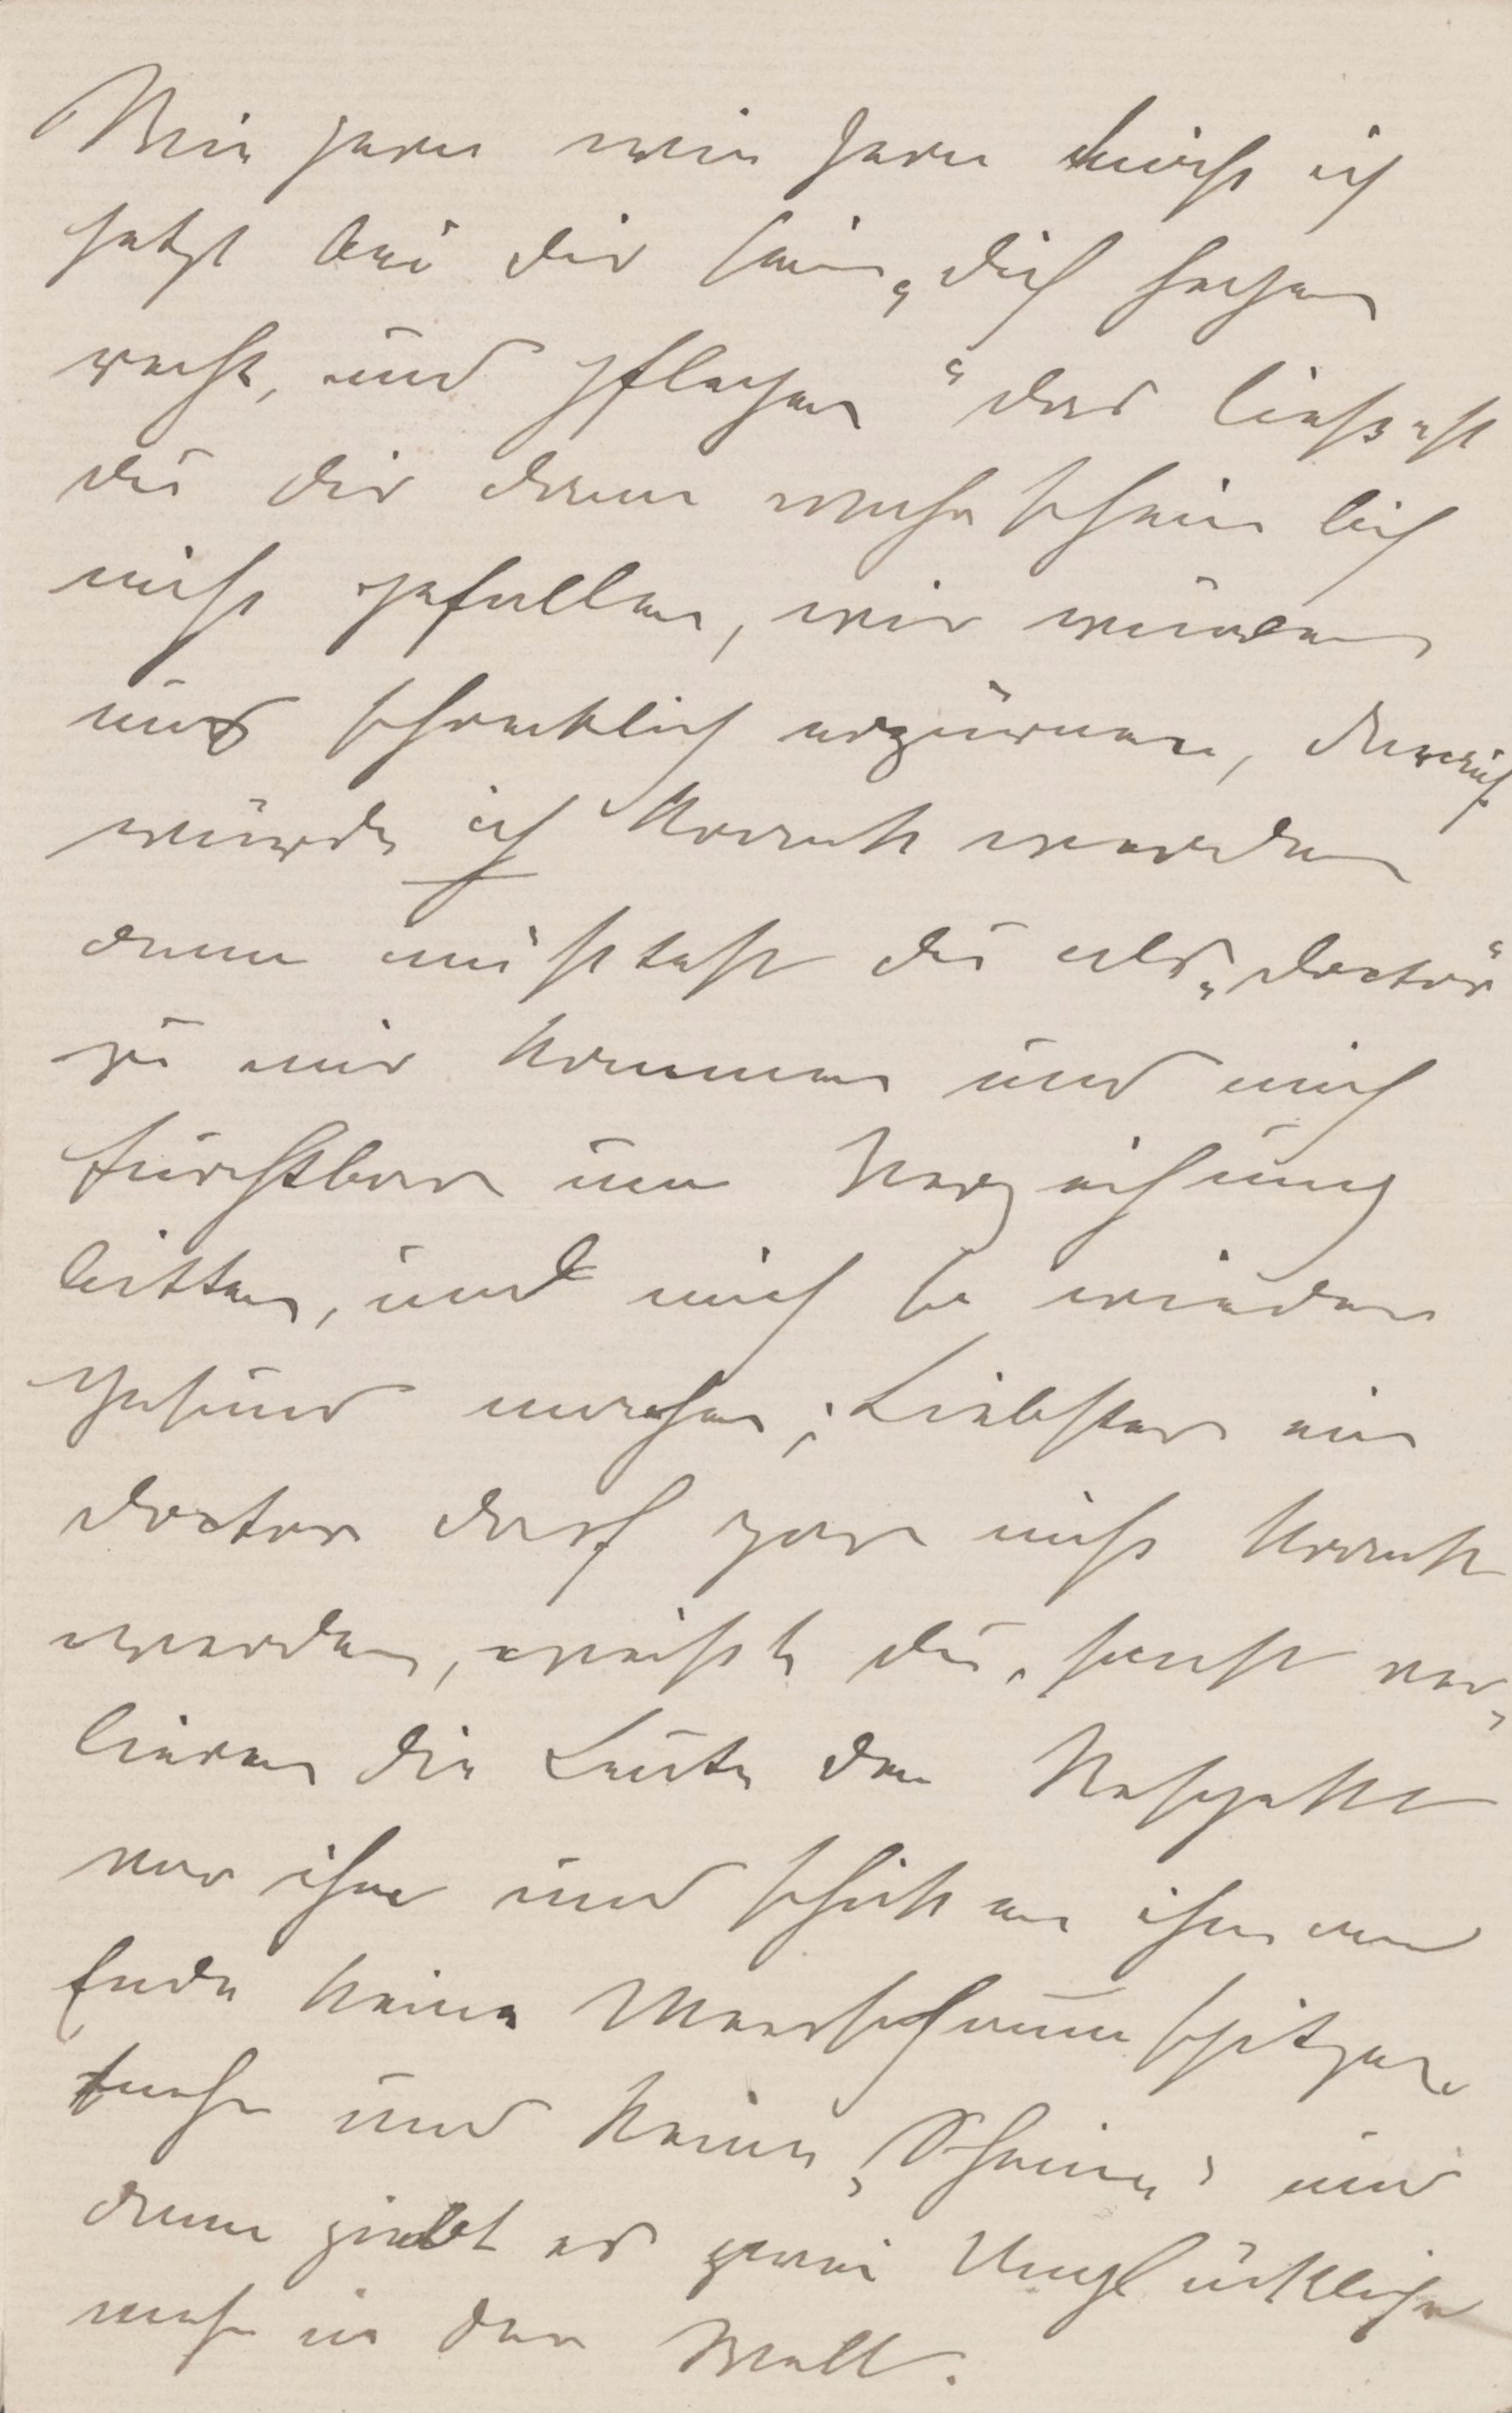 Wie gern wie gern möcht ich
jetzt bei dir sein, „dich hegen
 und pflegen“ das ließest
du dir dann wahrscheinlich
nicht gefallen, wir würden
uns schrecklich erzürnen, darauf
würde ich krank werden
dann müßtest du als „Doctor“
zu mir kommen und mich
furchtbar um Verzeihung
bitten, und mich so wieder
gesund machen; Liebster ein
Doctor darf gar nicht krank
werden, weißt du, sonst ver-
lieren die Leute den Respekt
vor ihm und schicken ihm am
Ende keine Meerschaumspitzen
mehr und keine „Scheine“ und
dann giebt es zwei Unglückliche
mehr in der Welt.